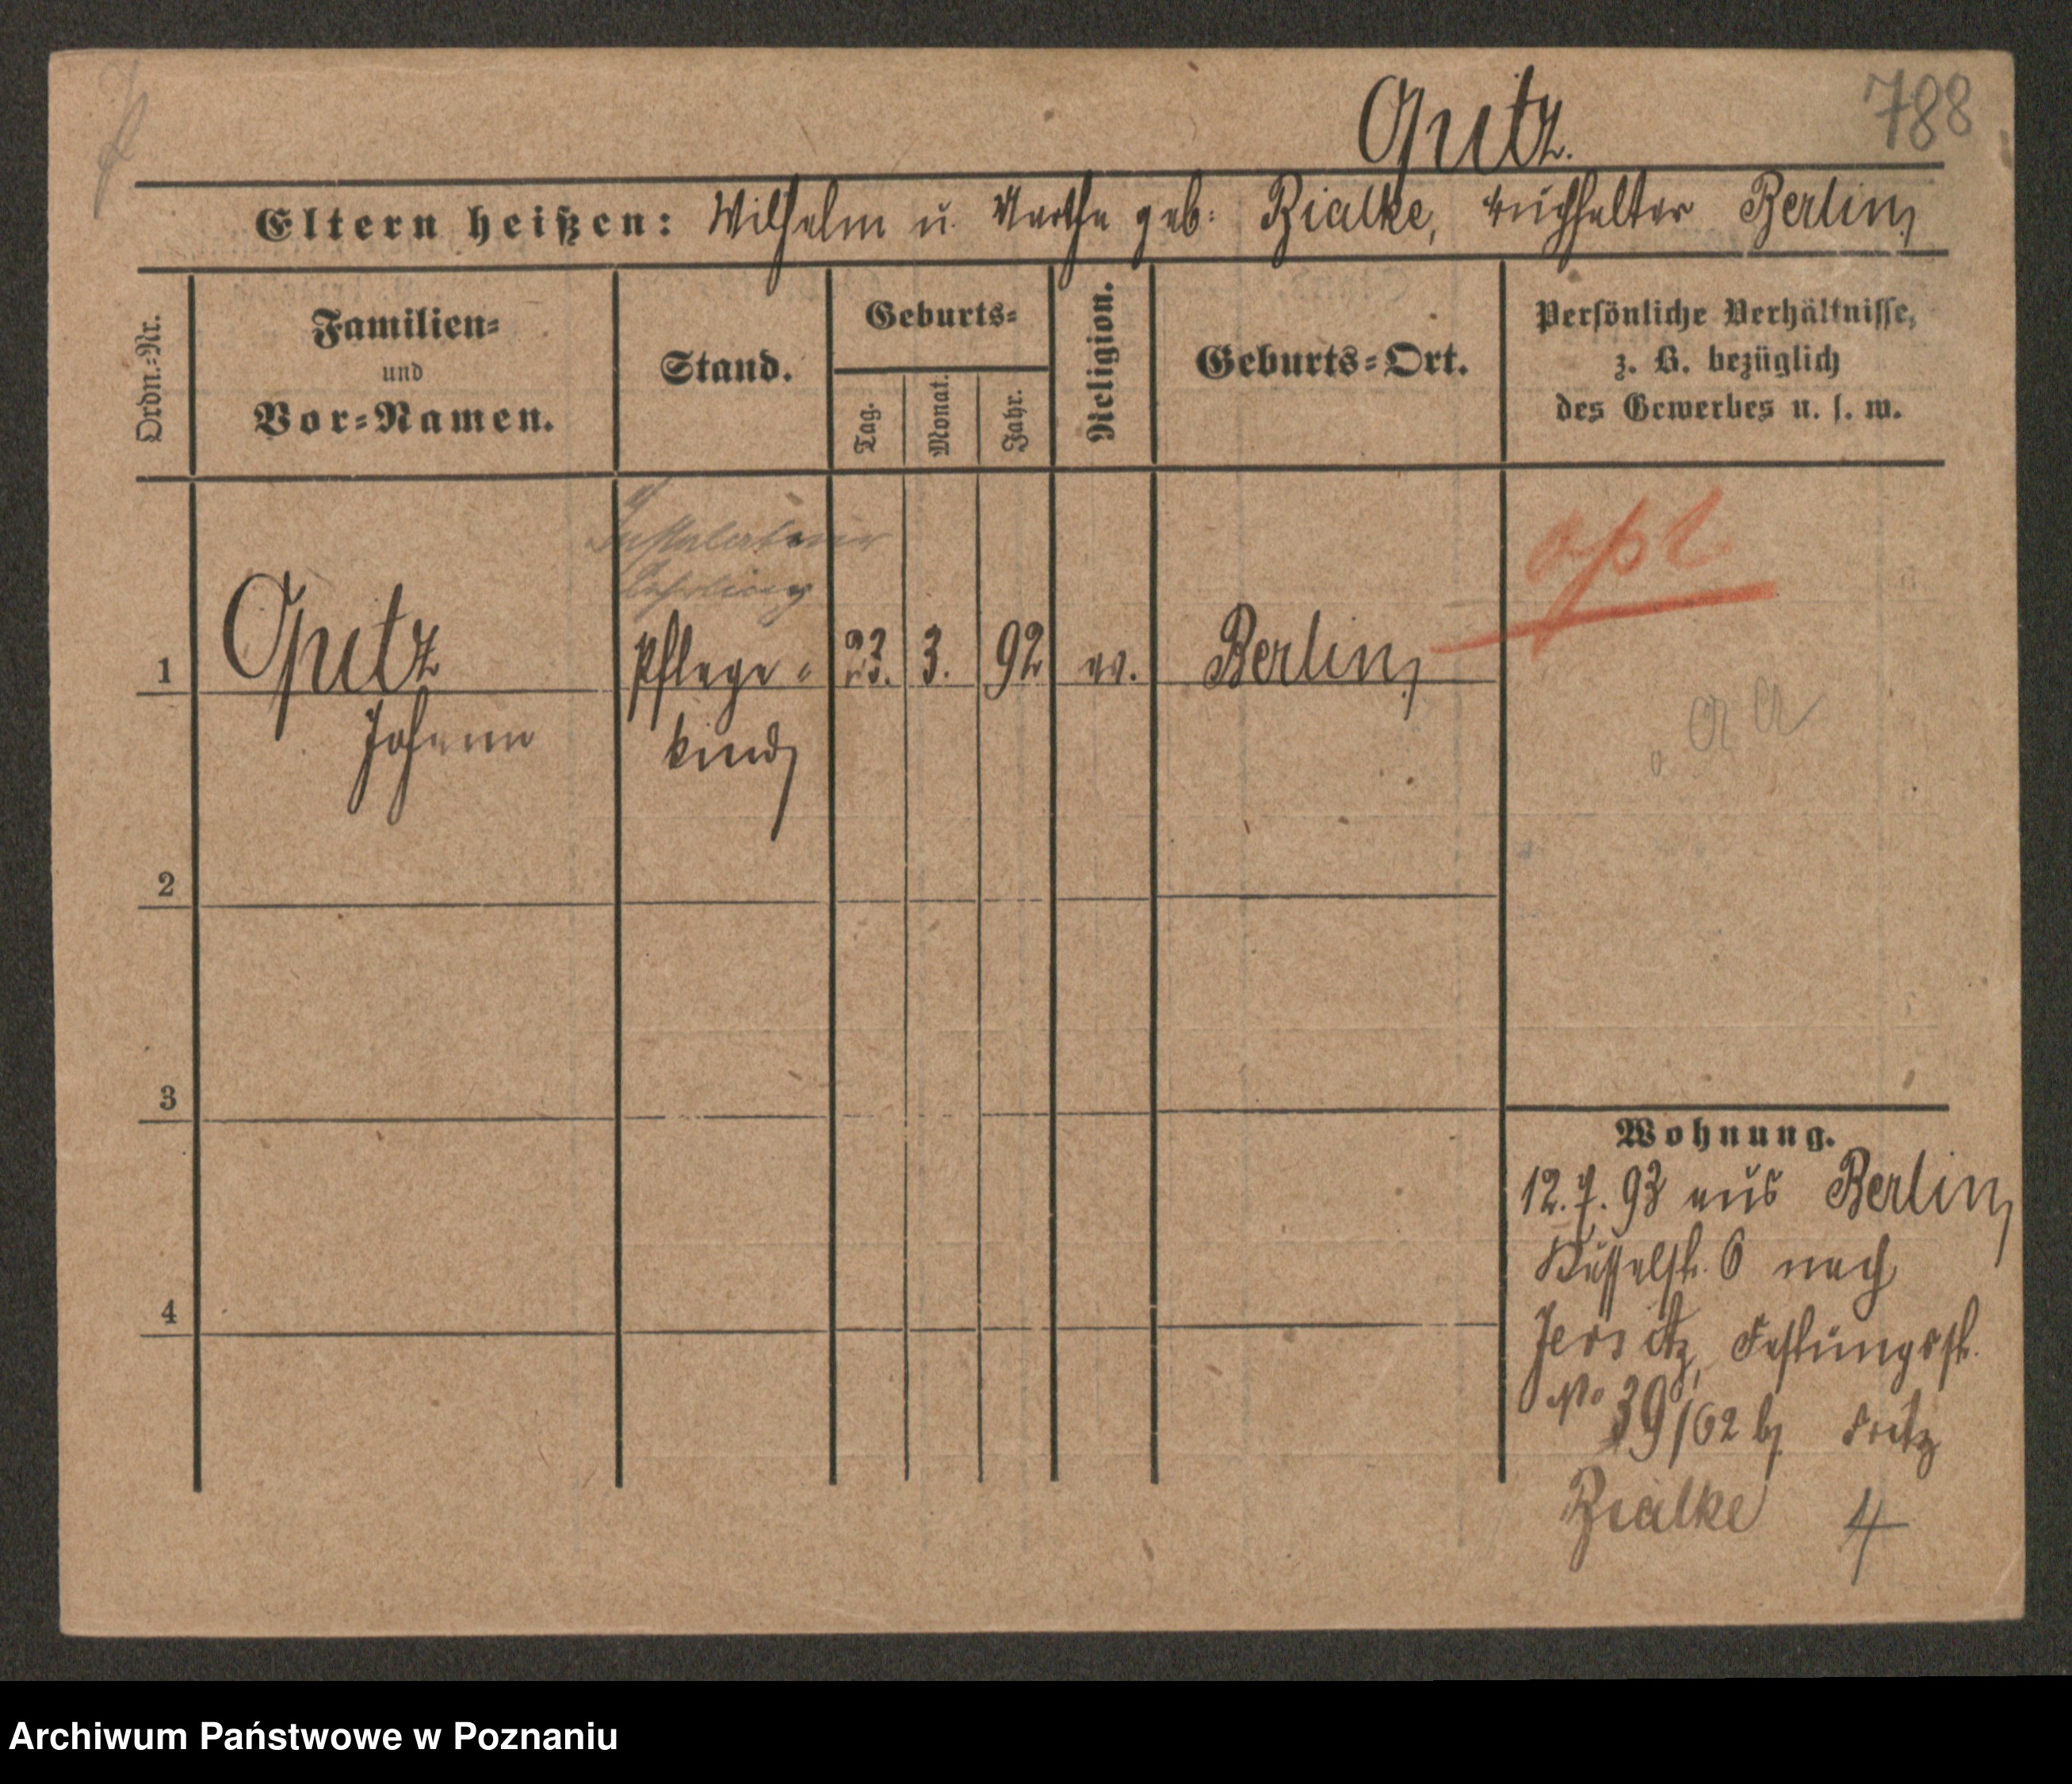 788
Opitz.
Eltern heißen: Wilhelm u. Marthe geb: Bialke, Buchhalter Berlin
Ordn.-Nr.
Familien-
und
Vor-Namen.
Stand.
Geburts-
Tag.
Monat.
Jahr.
Religion.
Geburts-Ort.
Persönliche Verhältnisse,
z. B. bezüglich
des Gewerbes u. s. w.
Lehrling
1 Opitz Pflege- 23. 3. 92 ev. Berlin
Johann kind
2
3
4
Wohnung.
12.7.93 aus Berlin
6 nach
Jersitz, Festungsstr.
No 39/62 bei Fritz
Bialke 4
Archiwum Państwowe w Poznaniu